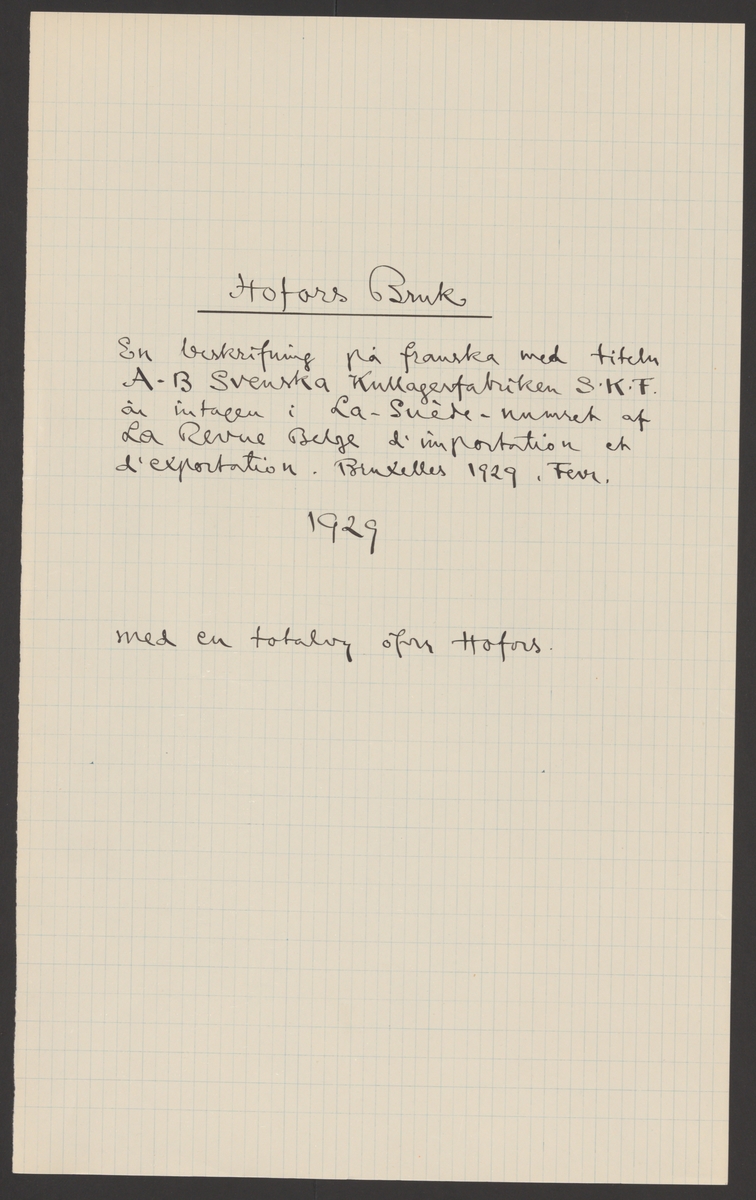 Hofors Bruk
En beskrifning på franska med titeln
A-B Svenska Kullagerfabriken S.K.F.
är intagen i La-Suède-numret af
La Revue Belge d'importation et
d'exportation. Bruxelles 1929. Fevr.
1929
med en totalvy öfver Hofors.